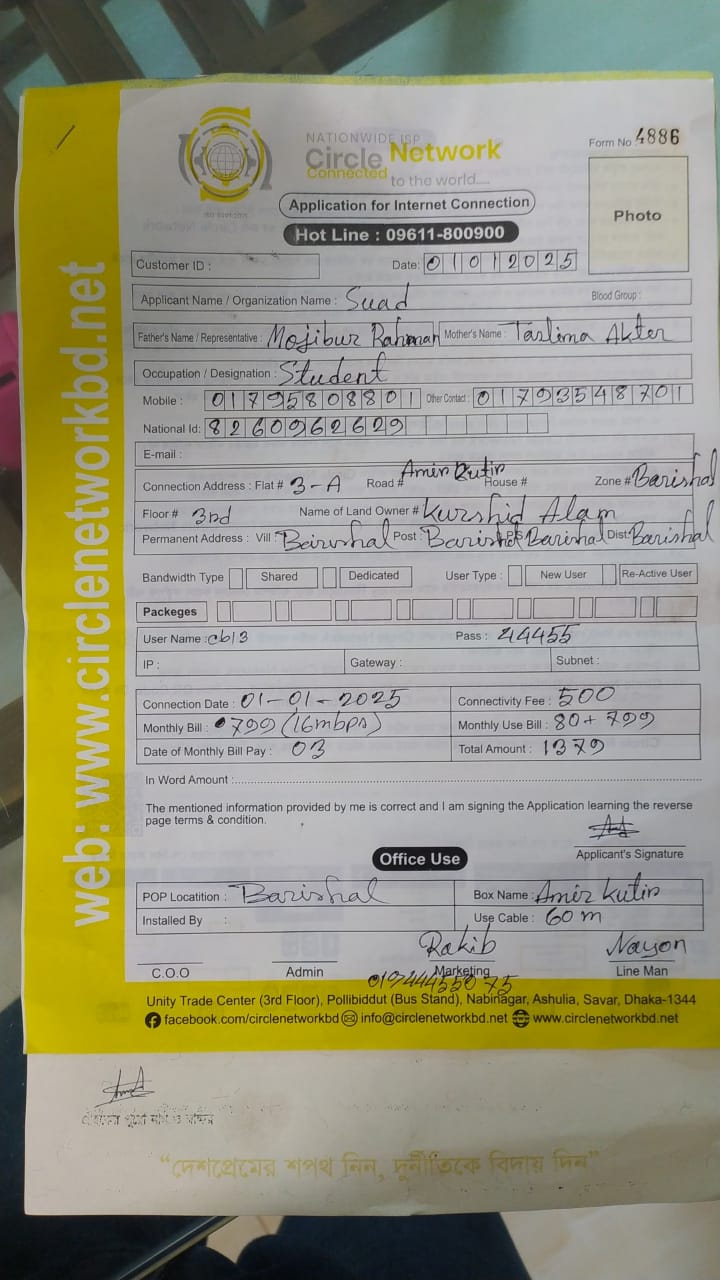 NATIONWIDE ISP
Circle Network
Connected to the world....
ISO 9001:2015
Form No 4886
Application for Internet Connection
Photo
Hot Line : 09611-800900
Customer ID :
Date: 01012025
Applicant Name / Organization Name : Suad Blood Group :
Father's Name / Representative : Mojibur Rahman Mother's Name : Taslima Akter
Occupation / Designation : Student
Mobile : 01795808801 Other Contact : 01793548701
National Id: 8260962629
E-mail :
Connection Address : Flat # 3-A Road # Amir Kutir House # Zone # Barishal
Floor # 3rd Name of Land Owner # Kurshid Alam
Permanent Address : Vill : Barishal Post : Barishal P.S Barishal Dist: Barishal
Bandwidth Type Shared Dedicated User Type : New User Re-Active User
Packeges
User Name : cb13 Pass : 44455
IP : Gateway : Subnet :
Connection Date : 01-01-2025 Connectivity Fee : 500
Monthly Bill : 799 (16mbps) Monthly Use Bill : 80+799
Date of Monthly Bill Pay : 03 Total Amount : 1379
In Word Amount :
The mentioned information provided by me is correct and I am signing the Application learning the reverse
page terms & condition.
Applicant's Signature
Office Use
POP Locatition : Barishal Box Name : Amir Kutir
Installed By : Use Cable : 60 m
Rakib Nayon
C.O.O Admin Marketing Line Man
Unity Trade Center (3rd Floor), Pollibiddut (Bus Stand), Nabinagar, Ashulia, Savar, Dhaka-1344
facebook.com/circlenetworkbd info@circlenetworkbd.net www.circlenetworkbd.net
web: www.circlenetworkbd.net
“দেশপ্রেমের শপথ নিন, দুর্নীতিকে বিদায় দিন”